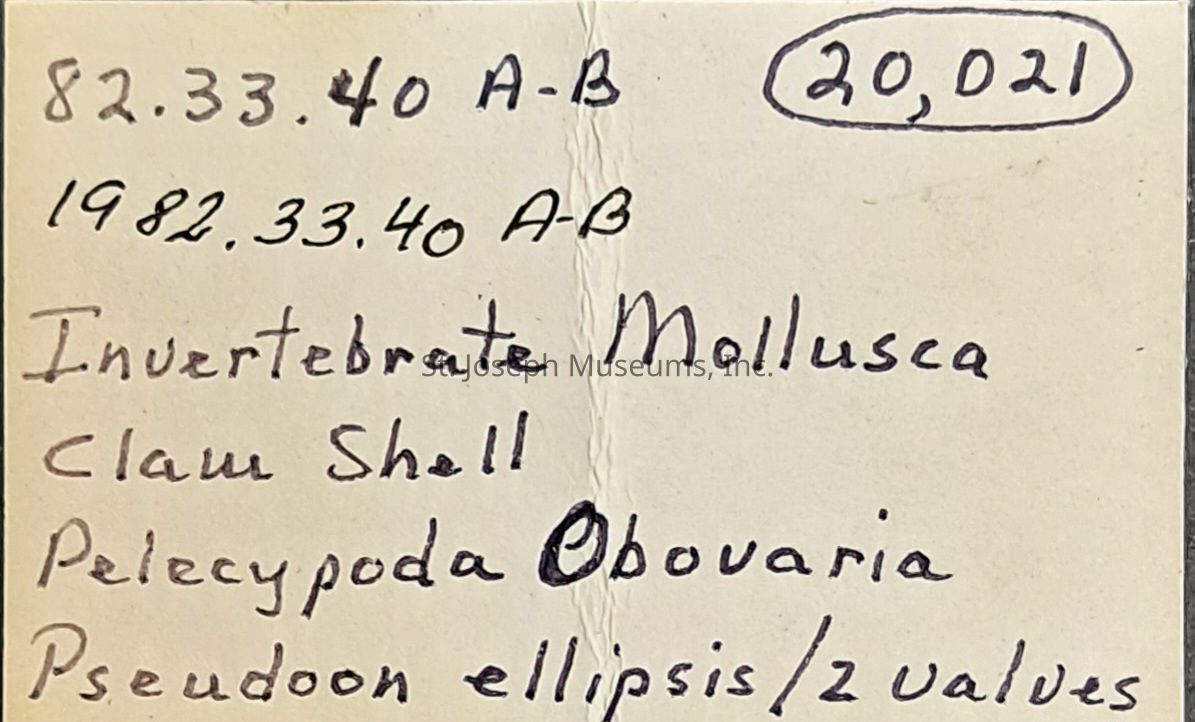 82.33.40 A-B 20,021
1982.33.40 A-B
Invertebrate Mollusca
St. Joseph Museums, Inc.
Clam Shell
Pelecypoda Obovaria
Pseudoon ellipsis/2 valves